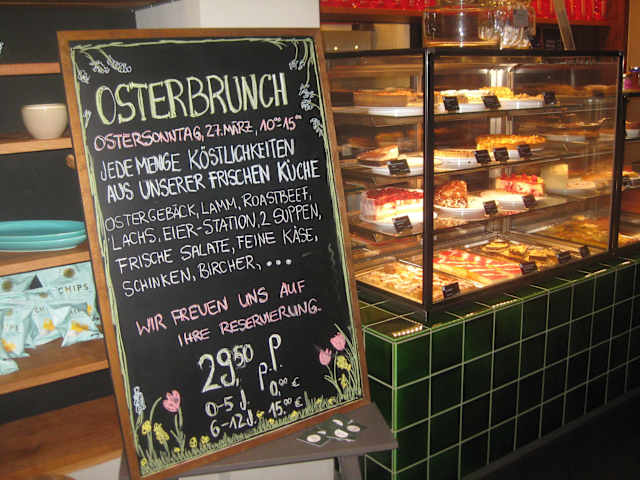 OSTERBRUNCH
OSTERSONNTAG, 27. MÄRZ, 10⁰⁰-15⁰⁰
JEDE MENGE KÖSTLICHKEITEN
AUS UNSERER FRISCHEN KÜCHE
OSTERGEBÄCK, LAMM, ROASTBEEF,
LACHS, EIER-STATION, 2 SUPPEN,
FRISCHE SALATE, FEINE KÄSE,
SCHINKEN, BIRCHER, ...
WIR FREUEN UNS AUF
IHRE RESERVIERUNG.
29,50 p.P.
0-5 J. 0,00 €
6-12 J. 15,00 €
CHIPS